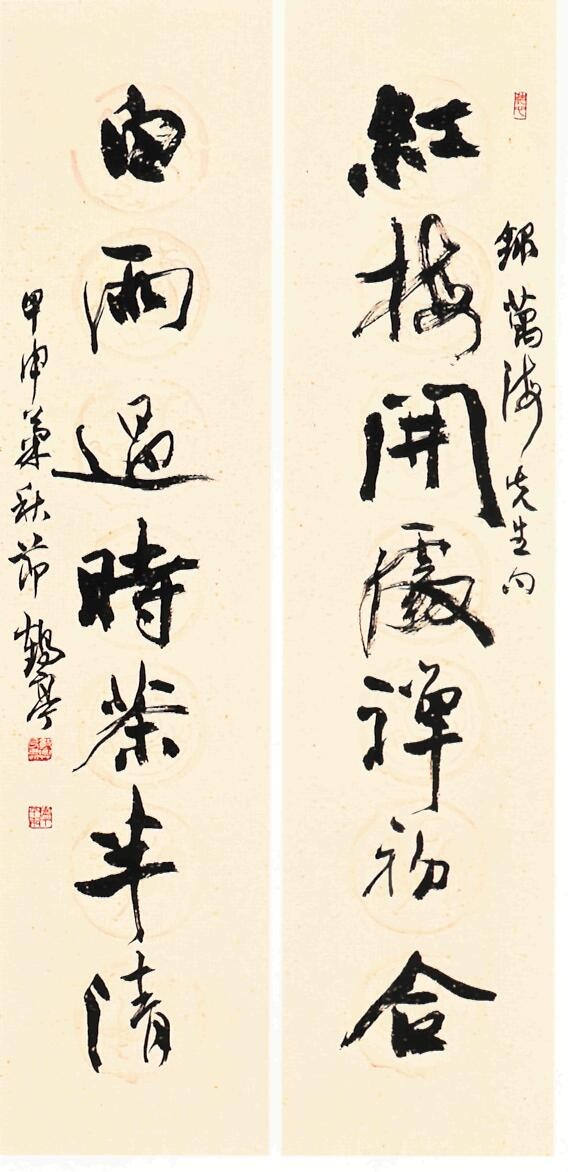 錄萬海先生句
紅梅開處禪初合
白雨過時茶半清
甲申葉秋節 鶴亭